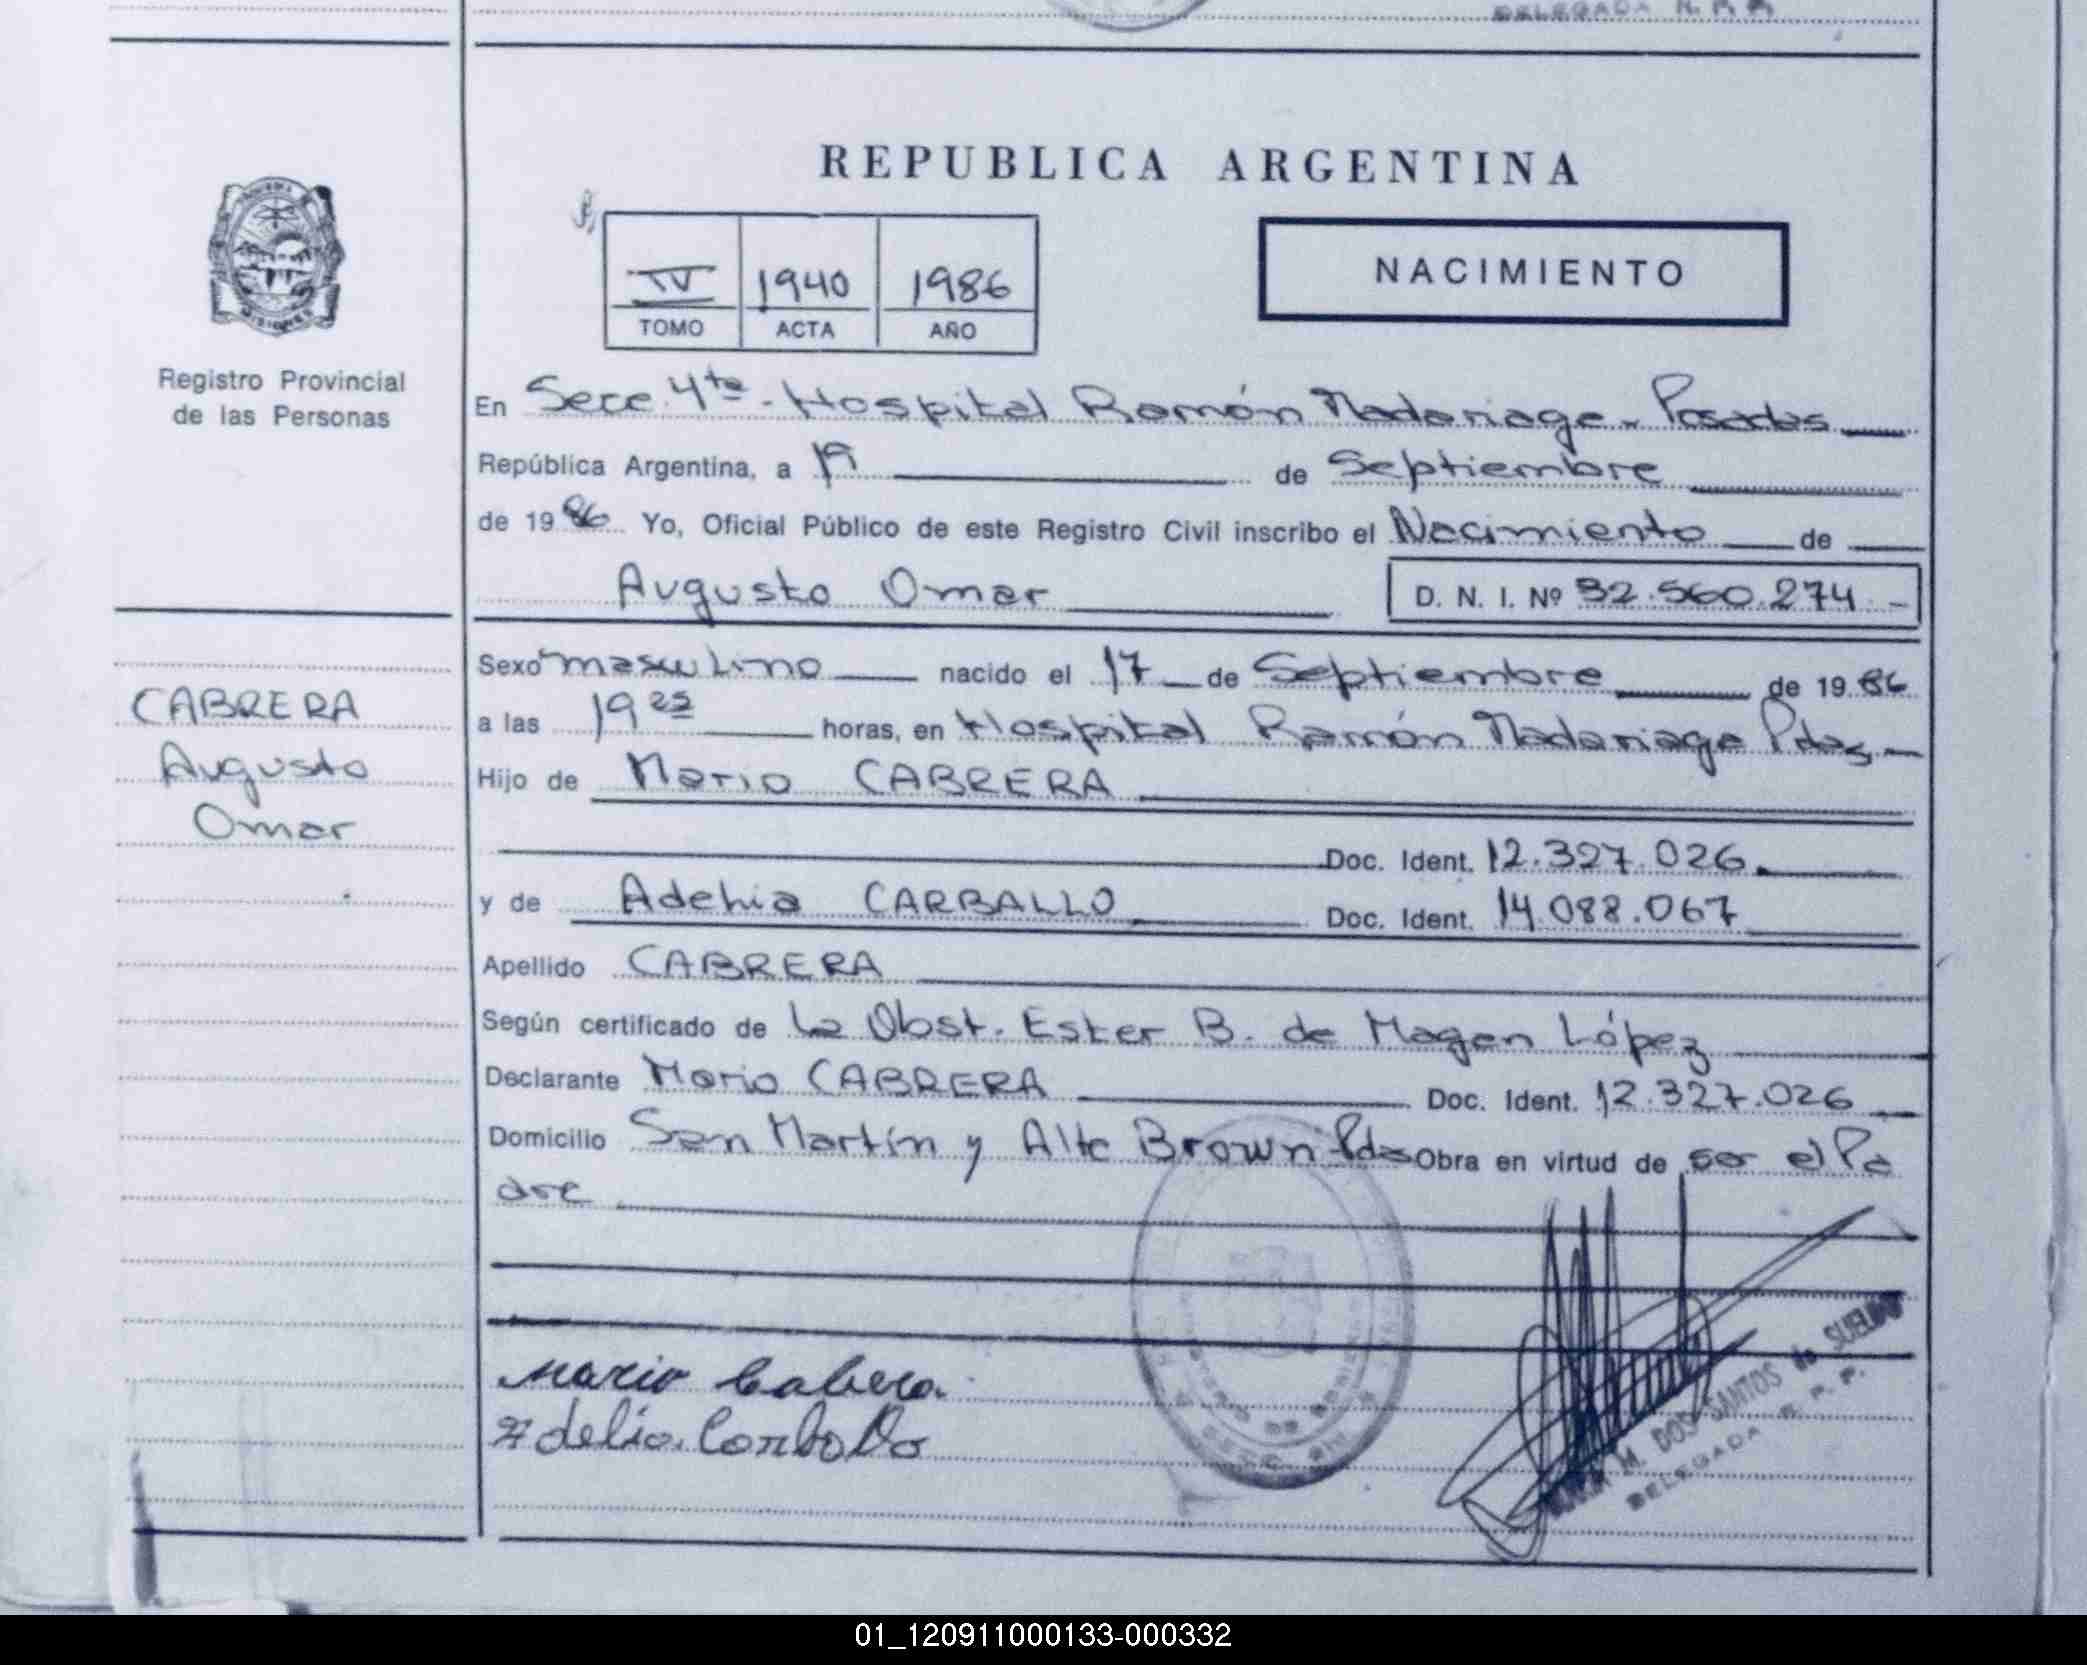 DELEGADA R. P. P.
REPUBLICA ARGENTINA
IV 1940 1986
TOMO ACTA AÑO
NACIMIENTO
MISIONES
Registro Provincial
de las Personas
En Secc 4ta - Hospital Ramón Madariaga - Posadas
República Argentina, a 19 de Septiembre
de 1986 Yo, Oficial Público de este Registro Civil inscribo el Nacimiento de
Augusto Omar D. N. I. Nº 32.560.274 -
CABRERA
Augusto
Omar
Sexo masculino nacido el 17 de Septiembre de 1986
a las 19 horas, en Hospital Ramón Madariaga Pdas -
Hijo de Mario CABRERA
Doc. Ident. 12.327.026
y de Adelia CARBALLO Doc. Ident. 14.088.067
Apellido CABRERA
Según certificado de la Obst. Ester B. de Magen López
Declarante Mario CABRERA Doc. Ident. 12.327.026
Domicilio San Martín y Alte Brown Pdas Obra en virtud de ser el Pa
dre
Mario Cabrera.
Adelia. Carballo
M. DOS SANTOS de
DELEGADA R. P. P.
01_120911000133-000332